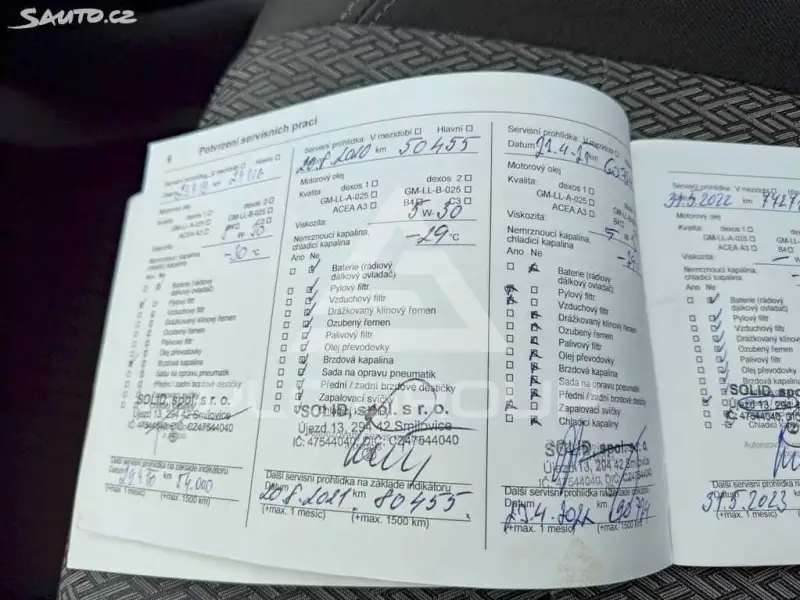 SAUTO.CZ
6 Potvrzení servisních prací
Servisní prohlídka V mezidobí Hlavní
Motorový olej
Kvalita dexos 1 dexos 2
GM-LL-A-025 GM-LL-B-025
ACEA A3 C3
Viskozita W
Nemrznoucí kapalina,
chladicí kapalina -30 °C
Ano Ne
Baterie (rádiový
dálkový ovladač)
Pylový filtr
Vzduchový filtr
Drážkovaný klínový řemen
Ozubený řemen
Palivový filtr
Olej převodovky
Brzdová kapalina
Sada na opravu pneumatik
Přední / zadní brzdové destičky
SOLID, spol. s r. o.
Újezd 13, 294 42 Smilovice
IČ: 47544040, DIČ: CZ47544040
Další servisní prohlídka na základě indikátoru
Datum km 54.000
(+max. 1 měsíc) (+max. 1500 km)
Servisní prohlídka V mezidobí Hlavní
20.8.2020 km 50455
Motorový olej
Kvalita dexos 1 dexos 2
GM-LL-A-025 GM-LL-B-025
ACEA A3 B4 C3
Viskozita: 5 W- 30
Nemrznoucí kapalina,
chladicí kapalina -29 °C
Ano Ne
Baterie (rádiový
dálkový ovladač)
Pylový filtr
Vzduchový filtr
Drážkovaný klínový řemen
Ozubený řemen
Palivový filtr
Olej převodovky
Brzdová kapalina
Sada na opravu pneumatik
Přední / zadní brzdové destičky
Zapalovací svíčky
SOLID, spol. s r. o.
Újezd 13, 294 42 Smilovice
IČ: 47544040, DIČ: CZ47544040
Další servisní prohlídka na základě indikátoru
Datum 20.8.2021 km 80455
(+max. 1 měsíc) (+max. 1500 km)
Servisní prohlídka V mezidobí
Datum 21.4.21 km
Motorový olej
Kvalita: dexos 1
GM-LL-A-025
ACEA A3
Viskozita:
Nemrznoucí kapalina,
chladicí kapalina
Ano Ne
Baterie (rádiový
dálkový ovladač)
Pylový filtr
Vzduchový filtr
Drážkovaný klínový řemen
Ozubený řemen
Palivový filtr
Olej převodovky
Brzdová kapalina
Sada na opravu pneumatik
Přední / zadní brzdové destičky
Zapalovací svíčky
Chladicí kapalina
SOLID, spol. s r. o.
Újezd 13, 294 42 Smilovice
IČ: 47544040, DIČ: CZ47544040
Další servisní prohlídka na základě
Datum km
(+max. 1 měsíc) (+max. 1500 km)
Servisní prohlídka V mezidobí
31.5.2022 km
Motorový olej
Kvalita: dexos 1
GM-LL-A-025
ACEA A3
Viskozita:
Nemrznoucí kapalina,
chladicí kapalina
Ano Ne
Baterie (rádiový
dálkový ovladač)
Pylový filtr
Vzduchový filtr
Drážkovaný klínový
Ozubený řemen
Palivový filtr
Olej převodovky
Brzdová kapalina
SOLID, spol.
Újezd 13, 294
Další servisní prohlídka na
Datum 31.5.2023
(+max. 1 měsíc)